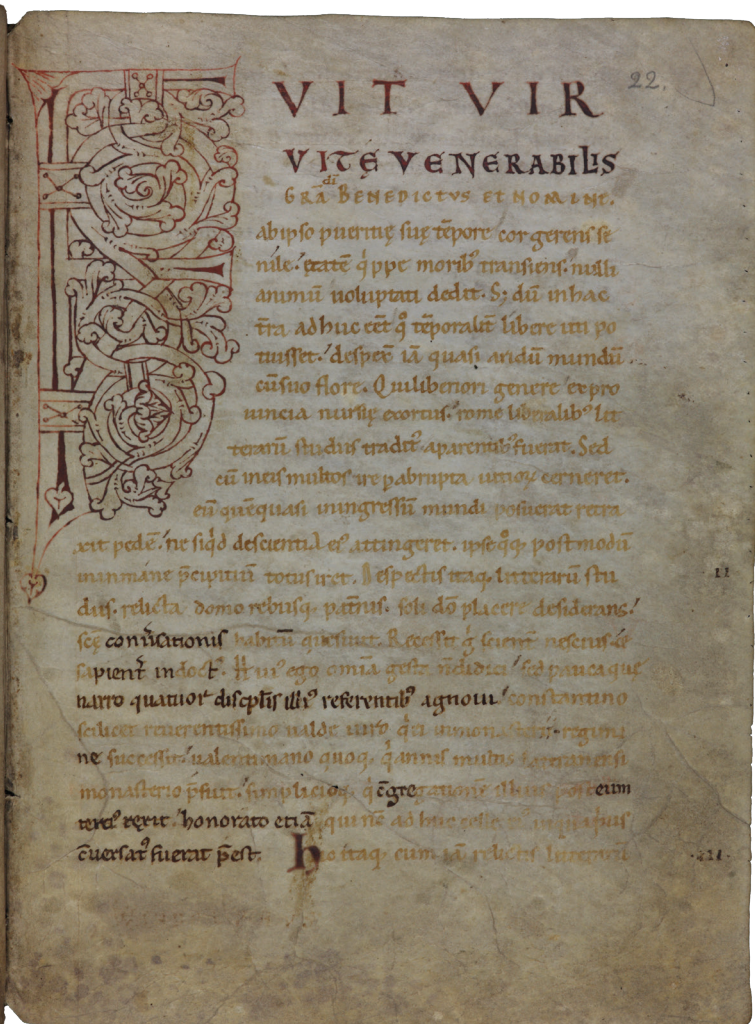 22.
FVIT VIR
VITĘ VENERABILIS
GRA͞ di BENEDICTVS ET NOMINE.
ab ipso pueritię suę te͞pore cor gerens se
nile. etate͞ q͛ppe morib; transiens. nulli
animu͞ uoluptati dedit. S; du͞ in hac
t͛ra adhuc ee͞t q° te͞poralit͛ libere uti po
tuisset. despex͛ ia͞ quasi aridu͞ mundu͞
cu͞ suo flore. Qui liberiori genere ex pro
uincia nursię exortus. rome liberalib; lit
teraru͞ studiis tradit᾽ a parentib; fuerat. Sed
cu͞ in eis multos ire p abrupta uitioꝝ cerneret.
eu͞ que͞ quasi in ingressu͞ mundi posuerat retra
xit pede͞. ne siq͛d de scientia ei᾽ attingeret. ipse q°q; postmodu͞
in inmane p͞cipitiu͞ totus iret. Despectis itaq; litteraru͞ stu
diis. relicta domo rebusq; pat͛nis. soli do͞ placere desiderans.
sce͞ conu͛sationis habitu͞ quesiuit. Recessit g͛ scient͛ nescius. &
sapient͛ indoct᾽. Hui᾽ ego om͞ia gesta n͞ didici. sed pauca que
narro quatuor discip͞lis illi᾽ referentib; agnoui. constantino
scilicet reuerentissimo ualde uiro q͛ ei in monasterii regimi
ne successit. ualentiniano quoq; q͛ annis multis lateranensi
monasterio p͞fuit. simplicioq; q͛ c͞gregatione͞ illius post eum
terci᾽ rexit. honorato etia͞ qui nc͞ adhuc celle ei᾽ in qua pri᾽
c͞uersat᾽ fuerat p͞est. Hic itaq; cum ia͞ relictis litteraru͞
II
II